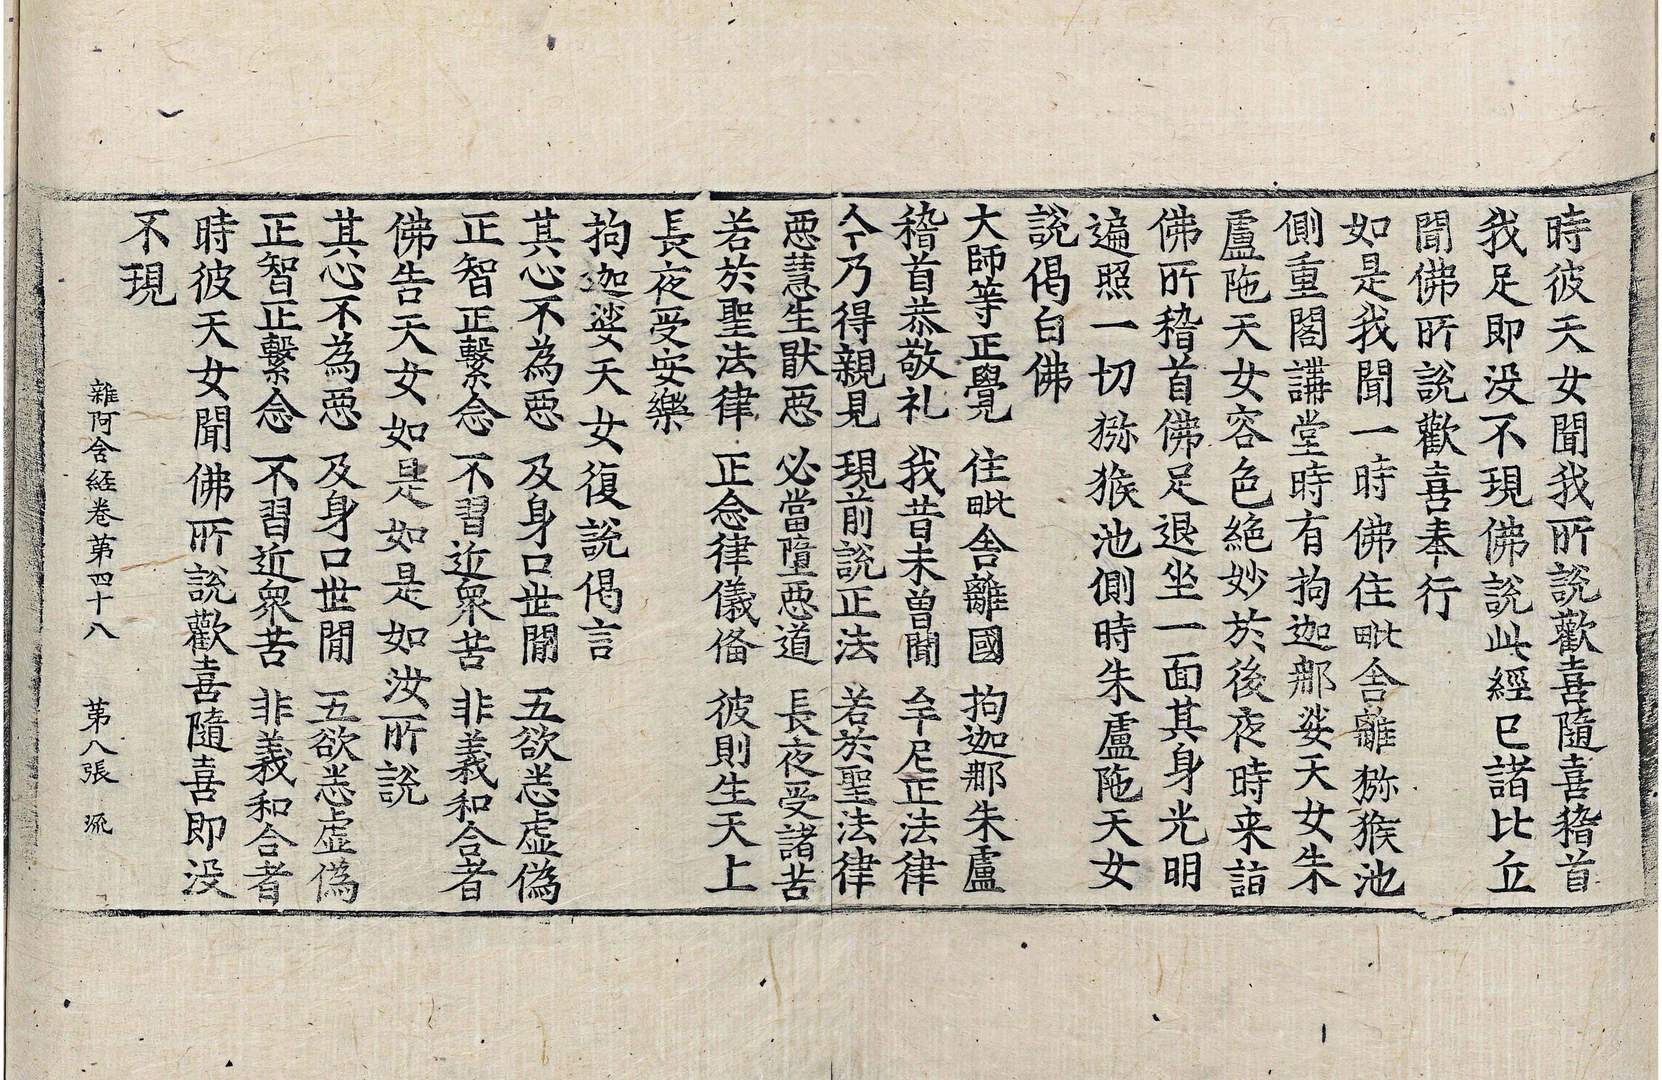 時彼天女聞我所說歡喜隨喜稽首
我足即没不現佛說此經已諸比丘
聞佛所說歡喜奉行
如是我聞一時佛住毗舍離獼猴池
側重閣講堂時有拘迦那娑天女朱
盧陁天女容色絶妙於後夜時来詣
佛所稽首佛足退坐一面其身光明
遍照一切獼猴池側時朱盧陁天女
說偈白佛
大師等正覺 住毗舍離國 拘迦那朱盧
稽首恭敬礼 我昔未曾聞 牟尼正法律
今乃得親見 現前說正法 若於聖法律
惡慧生猒惡 必當墮惡道 長夜受諸苦
若於聖法律 正念律儀俻 彼則生天上
長夜受安樂
拘迦娑天女復說偈言
其心不為惡 及身口世閒 五欲悉虛偽
正智正繫念 不習近衆苦 非義和合者
佛告天女如是如是如汝所說
其心不為惡 及身口世閒 五欲悉虛偽
正智正繫念 不習近衆苦 非義和合者
時彼天女聞佛所說歡喜隨喜即没
不現
雜阿含経卷第四十八 第八張 流